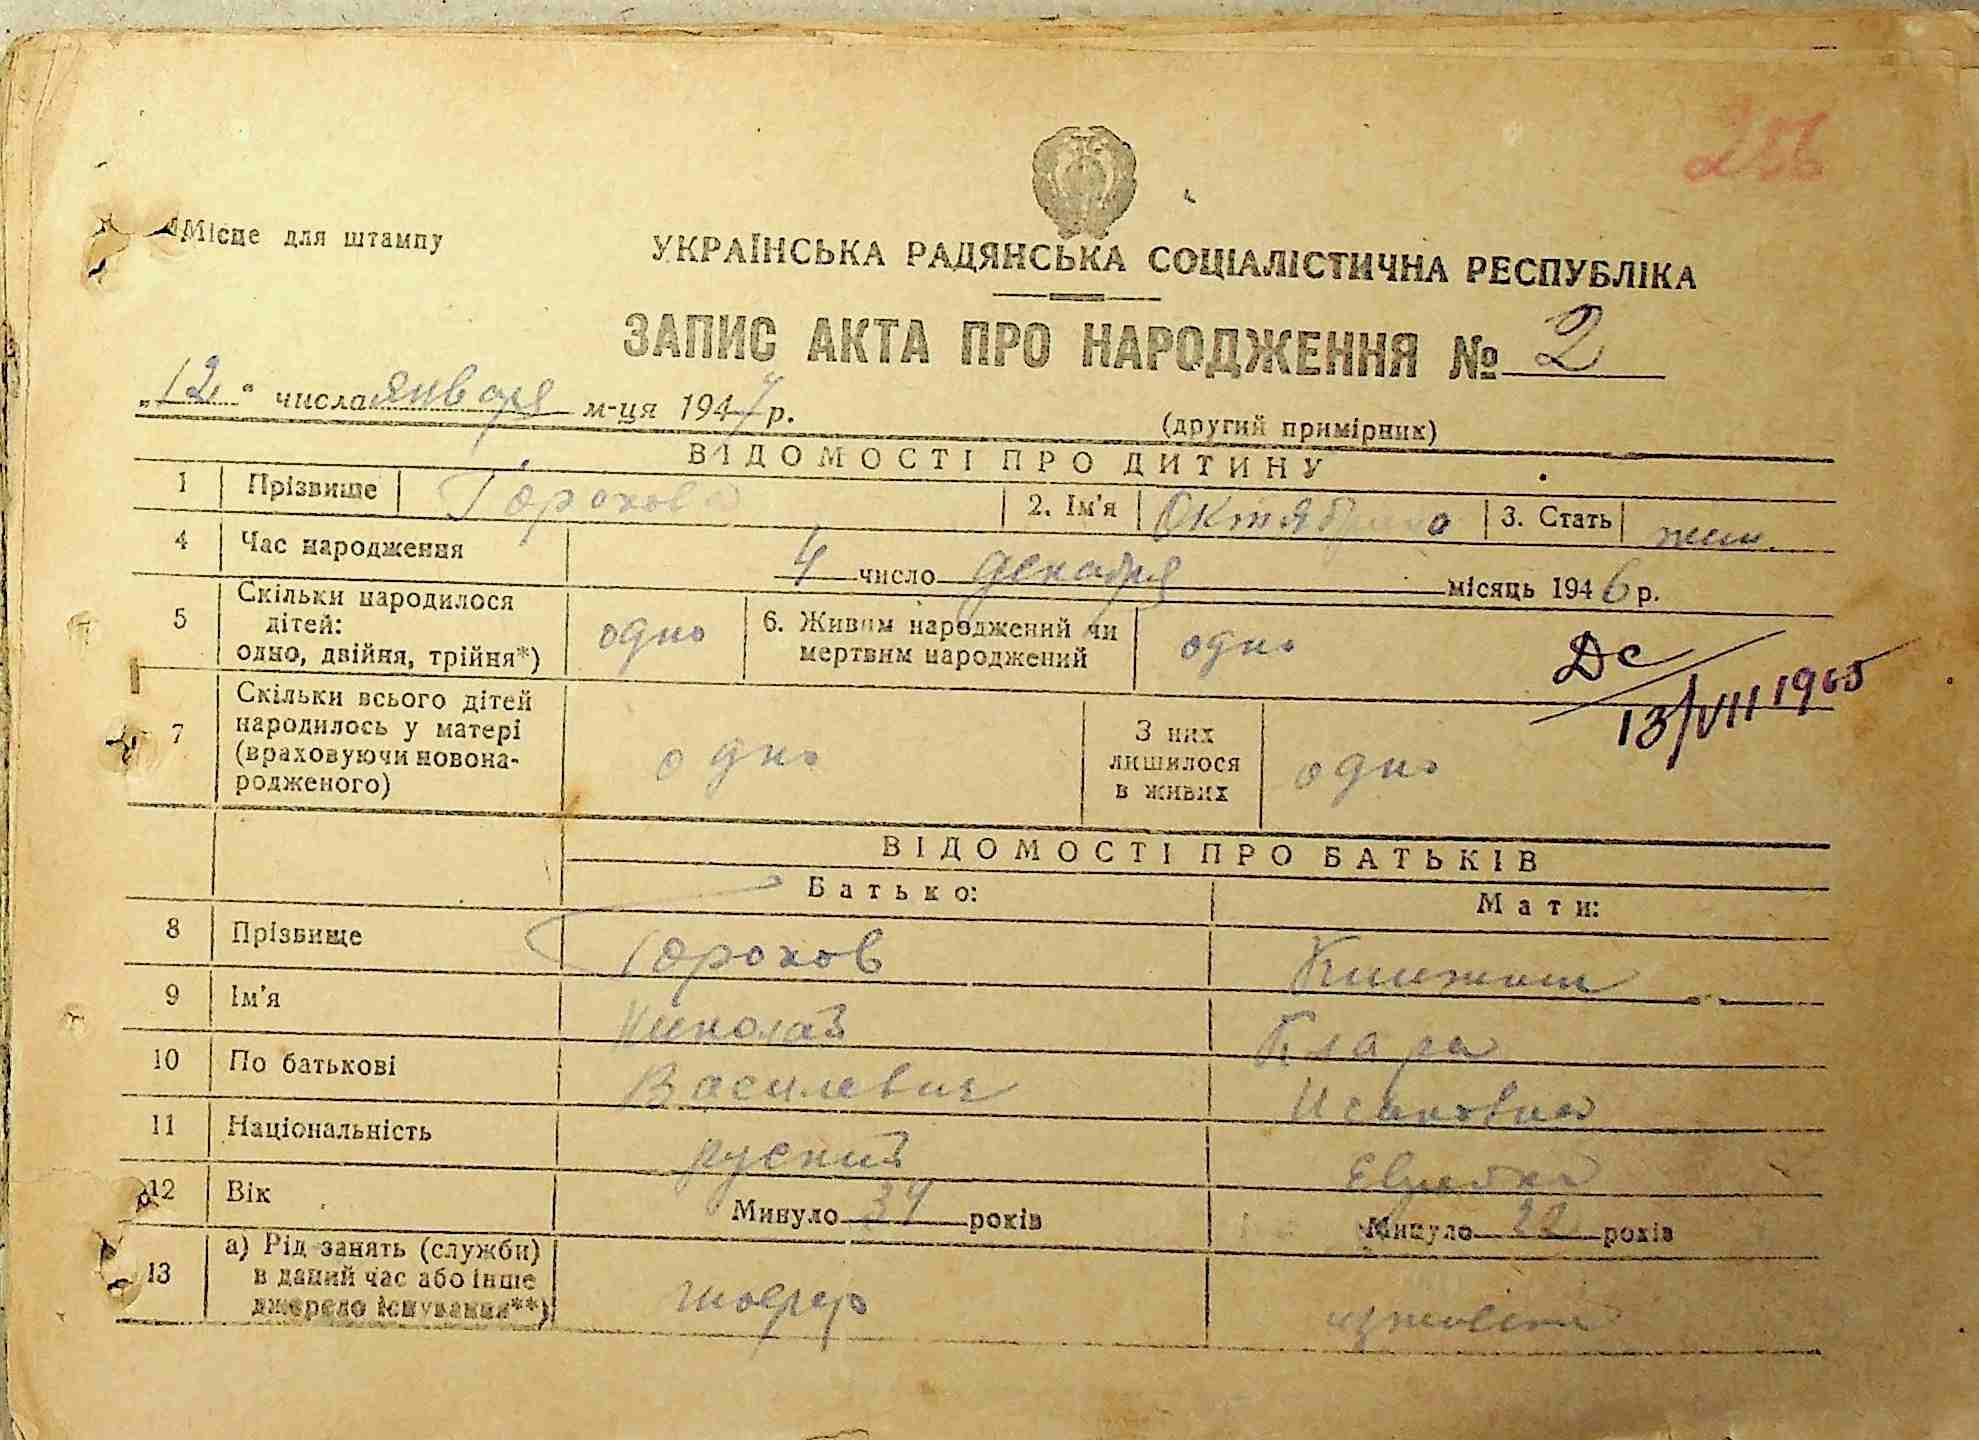 256
Місце для штампу
УКРАЇНСЬКА РАДЯНСЬКА СОЦІАЛІСТИЧНА РЕСПУБЛІКА
ЗАПИС АКТА ПРО НАРОДЖЕННЯ № 2
„12" числа января м-ця 1947 р.
(другий примірник)
ВІДОМОСТІ ПРО ДИТИНУ
1 Прізвище Горохова 2. Ім'я Октябрина 3. Стать жен.
4 Час народження 4 число декабря місяць 1946 р.
5 Скільки народилося дітей: одно, двійня, трійня*) одно 6. Живим народжений чи мертвим народжений одно
Дс
13/VII 1965
7 Скільки всього дітей народилось у матері (враховуючи новонародженого) одно З них лишилося в живих одно
ВІДОМОСТІ ПРО БАТЬКІВ
Батько: Мати:
8 Прізвище Горохов
9 Ім'я Николай Клара
10 По батькові Василевич Исаковна
11 Національність руский Еврейка
12 Вік Минуло 34 років Минуло 22 років
13 а) Рід занять (служби) в даний час або інше джерело існування**) шофер